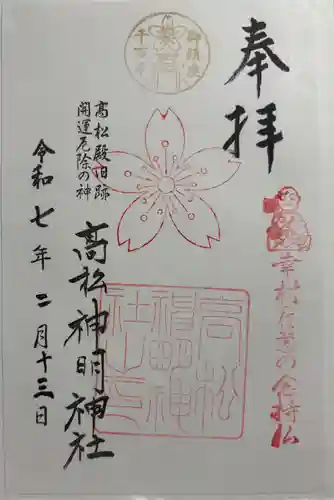 奉拝
幸村任堂の念持仏
高松殿旧跡
開運厄除の神
高松神明神社
令和七年二月十三日
高松
神明神
社之印